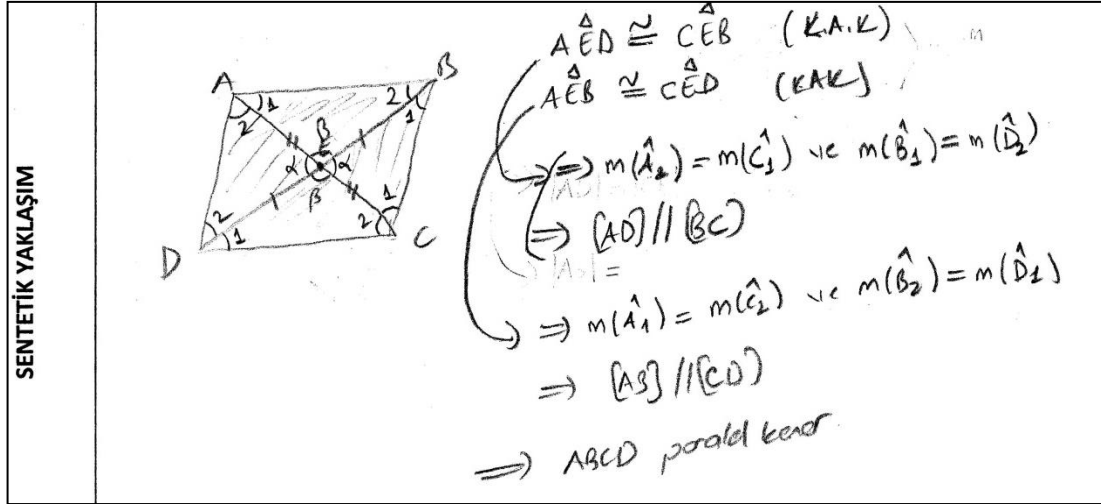 SENTETİK YAKLAŞIM
A B
2 1 2 1
β E
α α
β
2 1 2 1
D C
AÊD ≅ CÊB (K.A.K)
AÊB ≅ CÊD (KAK)
⇒ m(Â₂) = m(Ĉ₁) ve m(B̂₁) = m(D̂₂)
⇒ [AD] // [BC]
|AD| =
⇒ m(Â₁) = m(Ĉ₂) ve m(B̂₂) = m(D̂₁)
⇒ [AB] // [CD]
⇒ ABCD paralel kenar